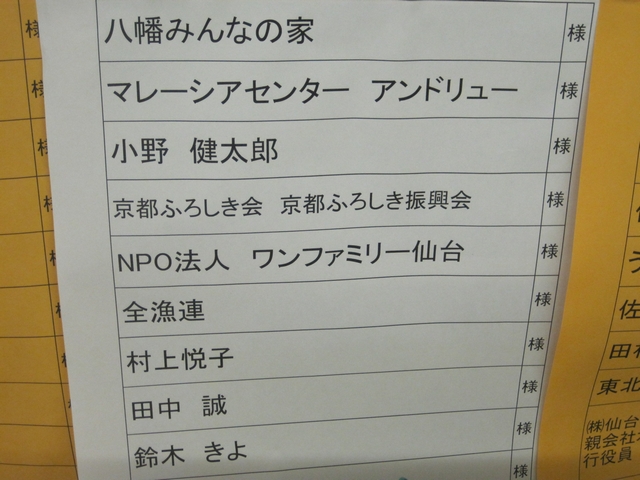 八幡みんなの家 様
マレーシアセンター アンドリュー 様
小野 健太郎 様
京都ふろしき会 京都ふろしき振興会 様
NPO法人 ワンファミリー仙台 様
全漁連 様
村上悦子 様
田中 誠 様
鈴木 きよ 様
様
様
様
様
様
様
様
様
佐
田
東北
㈱仙台
親会社
行役員